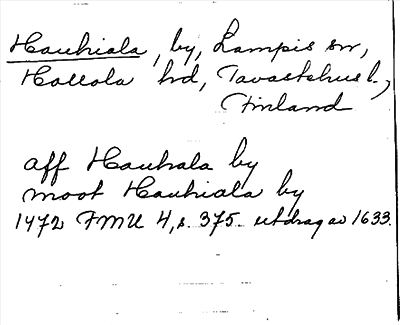 Hauhiala, by, Lampis sn,
Hollola hd, Tavastehus l.,
Finland
aff Hauhala by
moot Hauhiala by
1472 FMU 4, s. 375. utdrag av 1633.